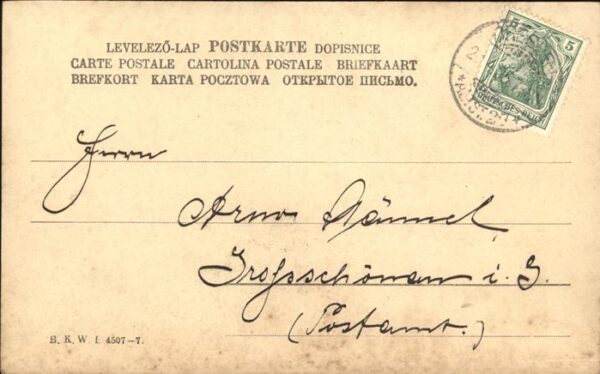 LEVELEZŐ-LAP POSTKARTE DOPISNICE
CARTE POSTALE CARTOLINA POSTALE BRIEFKAART
BREFKORT KARTA POCZTOWA ОТКРЫТОЕ ПИСЬМО.
5
DEUTSCHES REICH
Herrn
Arno Hännel,
Grossschönau i. S.
(Postamt.)
B. K. W. I. 4507-7.